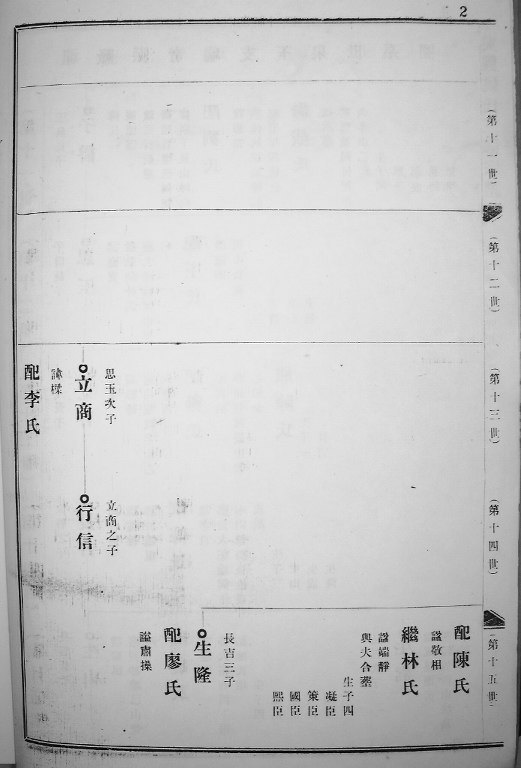 2
(第十一世)
(第十二世)
(第十三世)
思玉次子
立商
諱樑
配李氏
(第十四世)
立商之子
行信
(第十五世)
配陳氏
諡敬相
繼林氏
諡端靜
與夫合塟
生子四
凝臣
策臣
國臣
熙臣
長吉三子
生隆
配廖氏
諡肅操